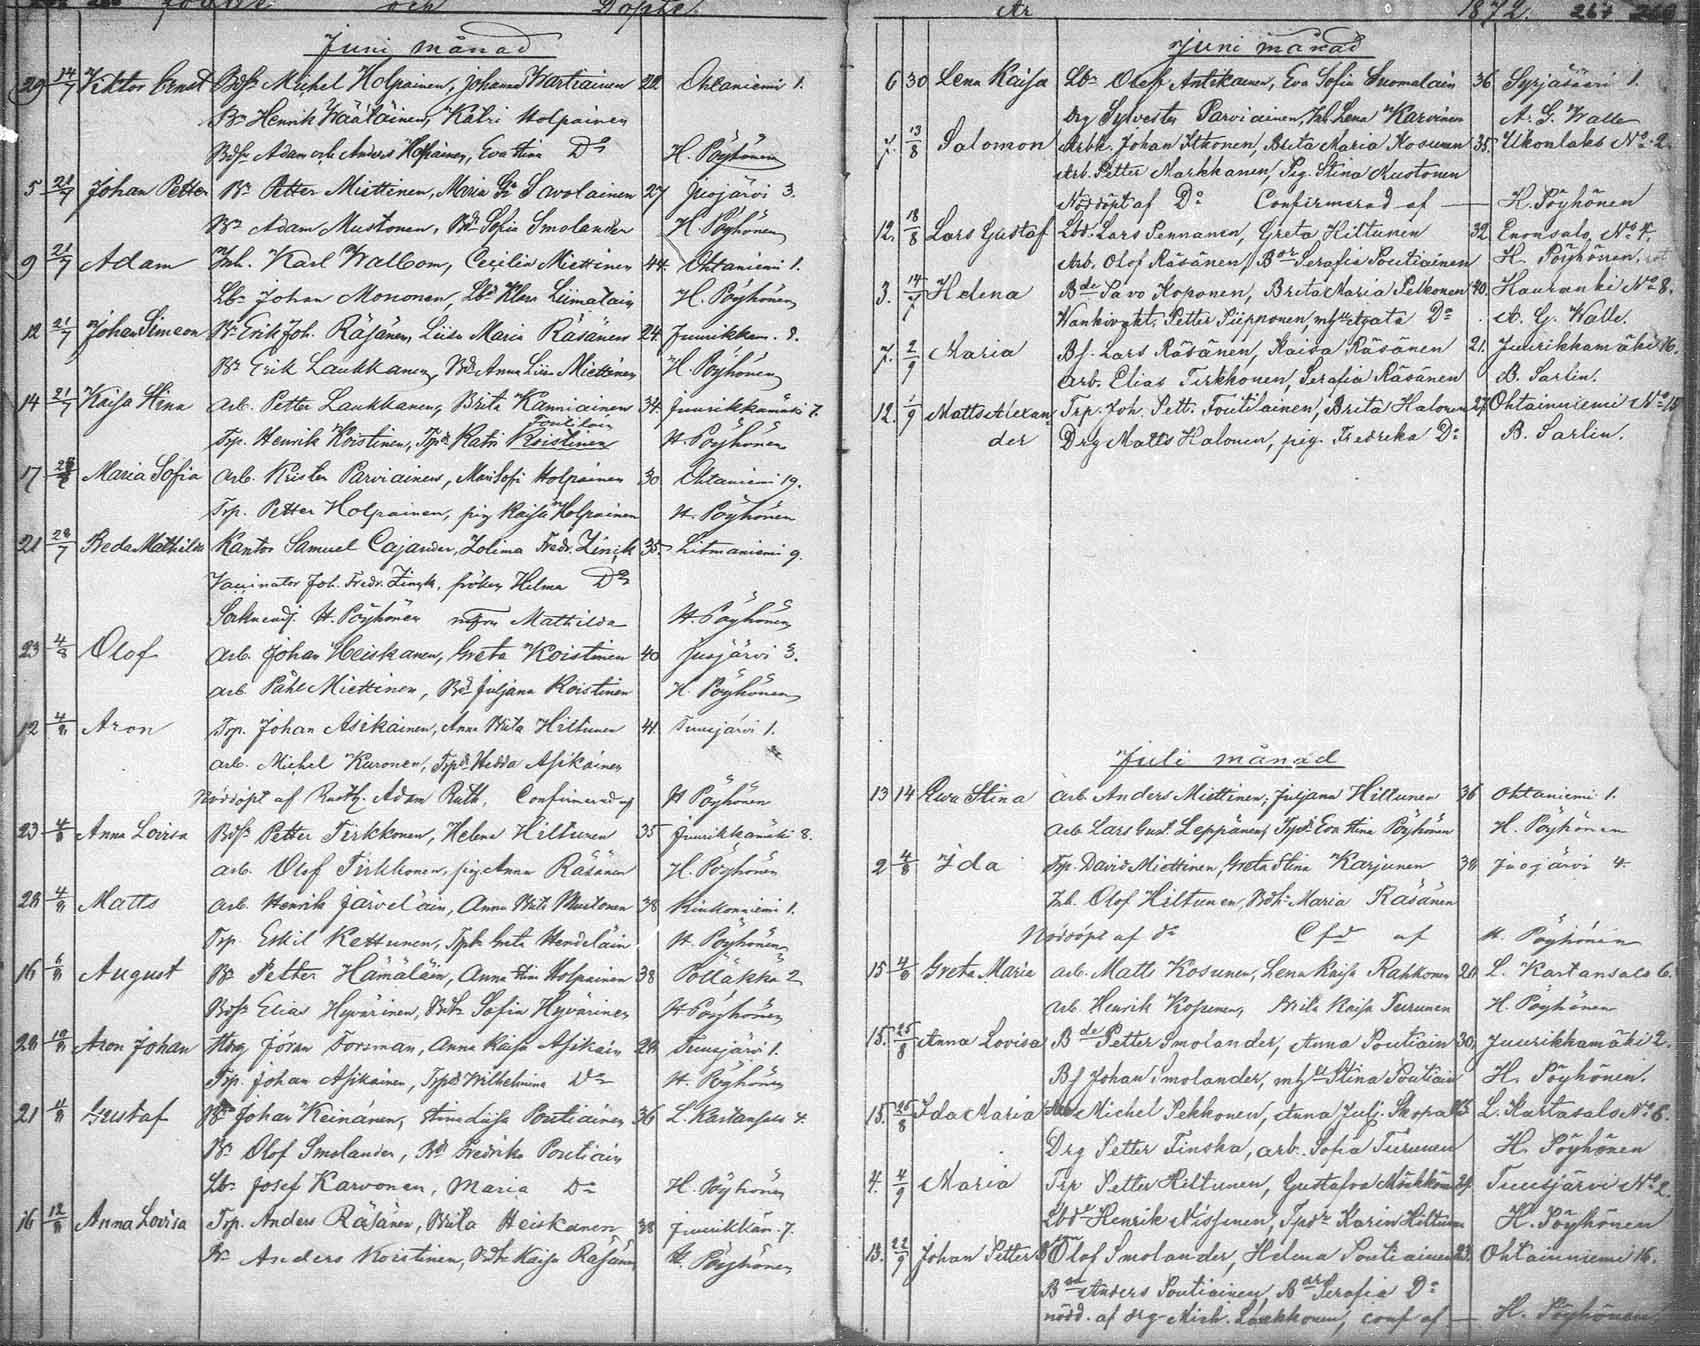 Födde och Döpte.
Juni månad
29 14/7 Viktor Ernst Bdss Michel Holpainen, Johanna Wartiainen 22 Ohtaniemi 1.
Bn Henrik Wäätäinen, Katri Holpainen
Bdss Adam och Anders Holpainen, Eva Stina Do H. Pöyhönen
5 21/7 Johan Petter Bn Petter Miettinen, Maria Sawolainen 27 Juojärvi 3.
Bn Adam Mustonen, Bdr Sofia Smolander H. Pöyhönen
9 21/7 Adam Inh. Karl Wallbom, Cecilia Miettinen 44. Ohtaniemi 1.
Lbn Johan Mononen, Lbn Klara Liimatain H. Pöyhönen
12 21/7 Johan Simeon Bn Erik Joh. Räsänen, Liisa Maria Räsänen 24. Juurikkam. 8.
Bn Erik Laukkanen, Bdr Anna Liisa Miettinen H. Pöyhönen
14 21/7 Kaisa Stina Arb. Petter Laukkanen, Brita Kanniainen 34. Juurikkamäki 7.
Trp. Henrik Koistinen, Trpd Katri Koistinen H. Pöyhönen
17 Maria Sofia Arb. Krister Parviainen, Mari Sofi Holpainen 30 Ohtaniemi 19.
Trp. Petter Holpainen, pig Kaisa Holpainen H. Pöyhönen
21 28/7 Beda Mathilda Kantor Samuel Cajander, Zelima Fredr. Zinck 35. Litmaniemi 9.
Vaccinator Joh. Fredr. Zinck, fröken Hilma Do
H. Pöyhönen Mathilda H. Pöyhönen
23 4/8 Olof Arb. Johan Heiskanen, Greta Koistinen 40 Juojärvi 3.
Arb Påhl Miettinen, Bd Juljana Koistinen H. Pöyhönen
12 4/8 Aron Trp. Johan Asikainen, Anna Brita Hiltunen 41. Tuusjärvi 1.
Arb. Michel Kuronen, Trpd Hedda Asikainen
Nöddöpt af Adam Ruth, Confirmerad af H Pöyhönen
23 4/8 Anna Lovisa Bdss Petter Tirkkonen, Helena Hiltunen 35 Juurikkamäki 8.
Arb. Olof Tirkkonen, pig. Anna Räsänen H. Pöyhönen
28 4/8 Matts Arb. Henrik Järveläin, Anna Brita Mustonen 38 Rinkonniemi 1.
Trp. Eskil Kettunen, Greta Hendeläin H. Pöyhönen
16 6/8 August Bn Petter Hämäläin, Anna Stina Holpainen 38 Pölläkkä 2
Bdss Elias Hyvärinen, Sofia Hyvärinen H. Pöyhönen
28 10/8 Aron Johan Jöran Forsman, Anna Kaisa Asikain 28 Tuusjärvi 1.
Trp. Johan Asikainen, Trpd Wilhelmina Do H. Pöyhönen
21 Gustaf Bn Johan Keinänen, Stina Liisa Poutiainen 36 L. Kartansalo 4.
Bn Olof Smolander, Bd Fredrika Poutiain
Lbn Josef Karvonen, Maria Do H. Pöyhönen
16 12/8 Anna Lovisa Trp. Anders Räsänen, Brita Heiskanen 38 Juurikkäm. 7.
Bn Anders Koistinen, Kaisa Räsänen H. Pöyhönen
År 1872. 267
Juni månad
6 30 Lena Kaisa Lbn Olof Antikainen, Eva Sofia Suomalain 36 Syrjäsaari 1.
Drg Sylvester Parviainen, Lena Karvinen A. G. Walle
7. 13/8 Salomon Arbk. Johan Itkonen, Brita Maria Kosunen 35. Ukonlaks No 2.
Arb. Petter Markkanen, Pig. Stina Kuotonen
Nöddöpt af Do Confirmerad af — H. Pöyhönen
12. 18/8 Lars Gustaf Lbd. Lars Pennanen, Greta Hiltunen 32 Enonsalo No 4.
Arb. Olof Räsänen, Bdr Serafia Poutiainen H. Pöyhönen.
3. 14/7 Helena Bde Pavo Koponen, Brita Maria Pelkonen 40. Hauranki No 8.
Petter Piipponen, Agata Do A. G. Walle.
7. 2/9 Maria Bf. Lars Räsänen, Kaisa Räsänen 21. Juurikkamäki 16.
Arb. Elias Tirkkonen, Serafia Räsänen B. Sarlin.
12. 1/9 Matts Alexan- Trp. Joh. Pett. Toutilainen, Brita Halonen 27 Ohtainniemi No 15
der Drg Matts Halonen, pig. Fredrika Do B. Sarlin.
Juli månad
13 14 Ewa Stina Arb. Anders Miettinen, Juljana Hiltunen 36 Ohtaniemi 1.
Arb Lars Gust. Leppänen, Trpd Eva Stina Pöyhönen H. Pöyhönen
2 4/8 Ida Trp. David Miettinen, Greta Stina Karjunen 38 Juojärvi 4.
Inh. Olof Hiltunen, Maria Räsänen
Nöddöpt af do Cfd af H. Pöyhönen
15 4/8 Greta Maria Arb. Matts Kosunen, Lena Kaisa Rahkonen 28 L. Kartansalo 6.
Arb. Henrik Kosunen, Brita Kaisa Turunen H. Pöyhönen
15. 25/8 Anna Lovisa Bde Petter Smolander, Anna Poutiain 30. Juurikkamäki 2.
Bf Johan Smolander, Stina Poutiain H. Pöyhönen.
15. 25/8 Ida Maria Michel Pekkonen, Anna Julj. Skopa L. Kartasalo No 6.
Drg Petter Finska, Arb. Sofia Turunen H. Pöyhönen
4. 4/9 Maria Trp Petter Hiltunen, Gustafva Tuusjärvi No 2.
Lbdr Henrik Nissinen, Tpdr Karin Hiltunen H. Pöyhönen
13. 22/9 Johan Petter Olof Smolander, Helena Poutiainen 23. Ohtainniemi 16.
Bde Anders Poutiainen, Bdr Serafia Do
nödd. af drg Mich. Laukkonen, conf af — H. Pöyhönen.